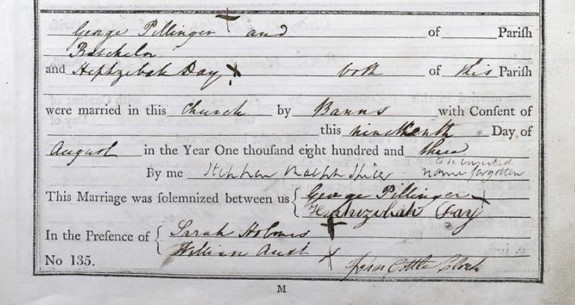 George Pillinger and of Parish
Batchelor
and Hephzibah Day both of this Parish
were married in this Church by Banns with Consent of
this nineteenth Day of
August in the Year One thousand eight hundred and three
to be inserted
By me Stephen name forgotten
This Marriage was solemnized between us { George Pillinger
Hephzibah Day
In the Presence of { Sarah Holmes
William
No 135. Cottle Clerk
M